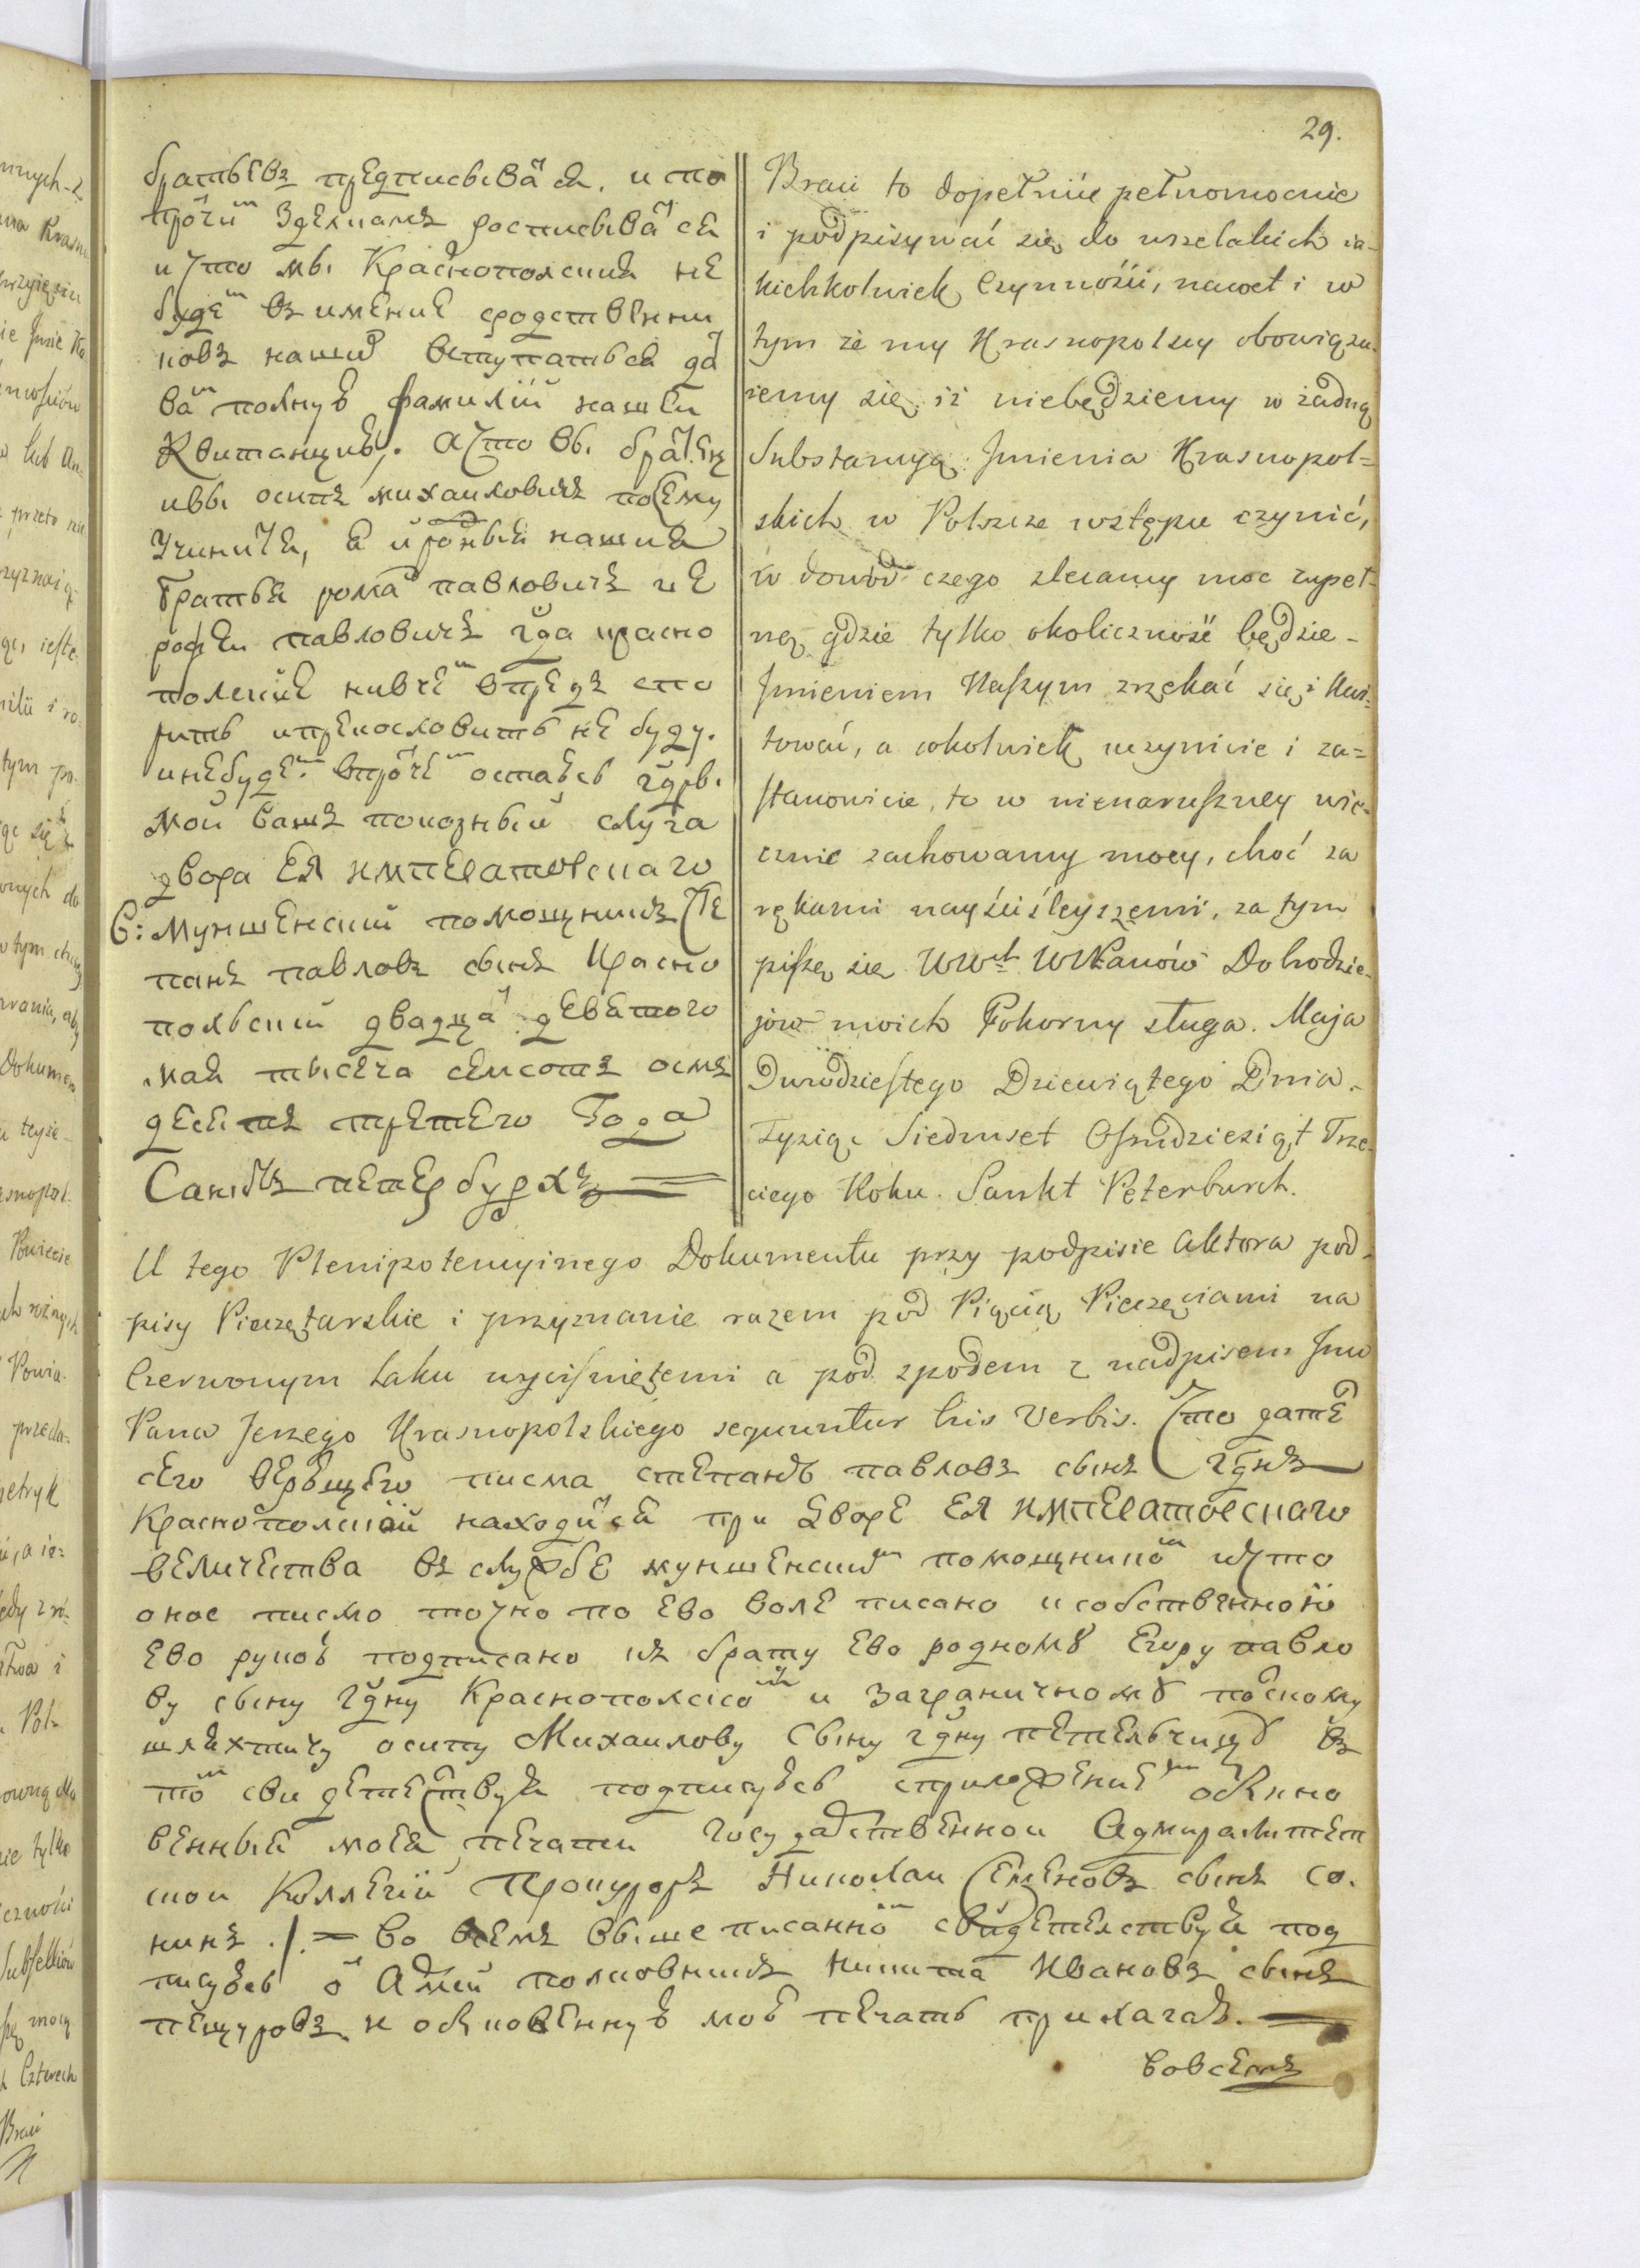 29.
братьевъ предписыва͠ся. и по
прочи͠м зделкамъ росписыва͠ся
и что мы Краснополския не
буде͠м въ имение сродственни
ковъ наши͠х вступаться да͠
ва͠м полную фамилїи нашеи
Квитанцию. а что вы братецъ
и вы осипъ михаиловичъ по сему
учините, я и родныя нашия
Братья рома͠ павловичъ и е
рофеи павловичъ гда красно
полские ни в че͠м впредъ спо
рить и прекословить не буду.
и не буде͠м. впроче͠м остаюсь гдрь
мой вашъ покорный слуга
двора ЕЯ ИМПЕРАТОРСКАГО
В: муншенский помощникъ Сте
панъ павловъ сынъ Красно
польский двадца͠ девятого
мая тысяча семсотъ осмъ
десятъ третьего Года
Санктъ петербурхъ
Braci to dopełnić pełnomocnie
i podpisywać się do wszelakich ia-
kichkolwiek Czynności, nawet i w
tym że my Krasnopolscy obowiązu-
iemy się, iż niebędziemy w żadną
Substancyą Jmienia Krasnopol-
skich w Polszcze wstępu czynić,
w dowod czego zlecamy moc zupeł-
ną gdzie tylko okoliczność będzie-
Jmieniem Naszym zrzekać się i Kwi-
tować, a cokolwiek uczynicie i za-
stanowicie, to w nienaruszney wie-
cznie zachowamy mocy, choć za
rękami nayściśleyszemi, za tym
piszę się WWch WPanów Dobrodzie-
jów moich Pokorny sługa. Maja
Dwudziestego Dziewiątego Dnia-
Tysiąc Siedmset Ośmdziesiąt Trze-
ciego Roku. Sankt Peterburch.
U tego Plenipotencyinego Dokumentu przy podpisie Aktora pod-
pisy Pieczętarskie i przyznanie razem pod Pięcią Pieczęciami na
Czerwonym Laku wyciśniętemi a pod spodem z nadpisem Jmc
Pana Jerzego Krasnopolskiego sequuntur his Verbis. Что дате͠
сего верющего писма степанъ павловъ сынъ гднъ
Краснополской находи͠ся при Дворе ЕЯ ИМПЕРАТОРСКАГО
величества въ службе муншенски͠м помощнико͠м и что
оное писмо точно по ево воле писано и собственною
ево рукою подписано къ брату ево родному Егору павло
ву сыну гдну Краснополско͠му и заграничному полскому
шляхтичу осипу Михаилову сыну гдну петелчицу въ
то͠м свидетелствуя подписуюсь с приложение͠м обыкно
венныя моея печати государственнои Адмиралитеп
скои Коллегїи Прокуроръ Николаи Семеновъ сынъ Со.
нинъ ./. = во всемъ выше писанно͠м свидетелствуя под
писуюсь о͠ Армеи полковникъ никита Ивановъ сынъ
пещуровъ и обыкновенную мою печать прилагаю.
вовсемъ